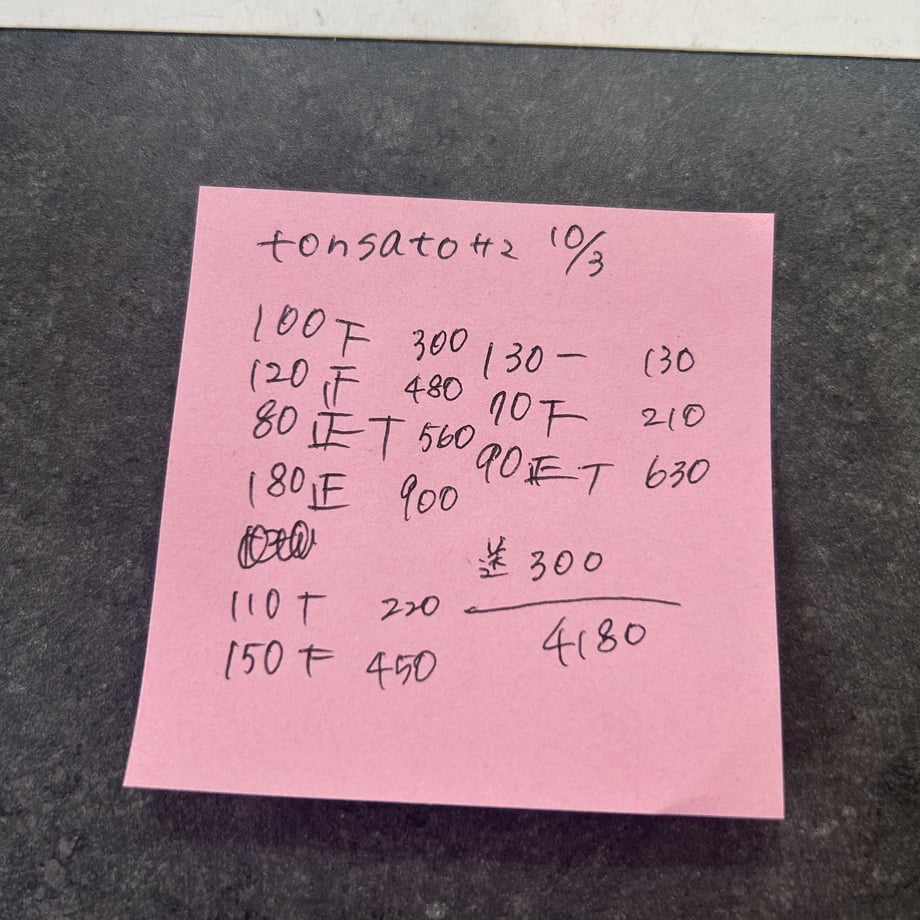 tonsato++2 10/3
100下 300
120正 480
80正T 560
180正 900
110T 220
150下 450
130一 130
70下 210
90正T 630
送 300
4180